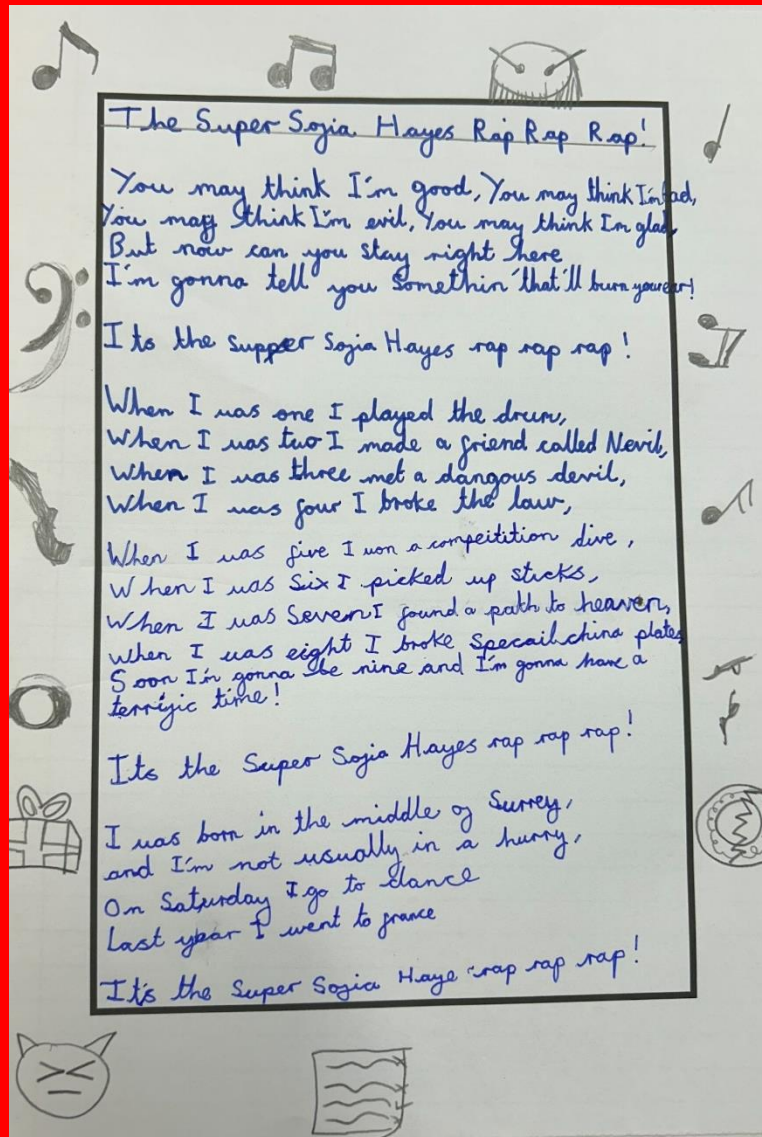 The Super Sofia Hayes Rap Rap Rap!
You may think I'm good, You may think I'm bad,
You may think I'm evil, You may think Im glad,
But now can you stay right here
I'm gonna tell you somethin' that'll burn your ear!
Its the supper Sofia Hayes rap rap rap!
When I was one I played the drum,
When I was two I made a friend called Nevil,
When I was three met a dangous devil,
When I was four I broke the law,
When I was five I won a compeitition dive,
When I was Six I picked up sticks,
When I was Seven I found a path to heaven,
when I was eight I broke Specail china plates
Soon I'm gonna be nine and I'm gonna have a
terrific time!
Its the Super Sofia Hayes rap rap rap!
I was born in the middle of Surrey,
and I'm not usually in a hurry,
On Saturday I go to dance
Last year I went to france
It's the Super Sofia Haye rap rap rap!